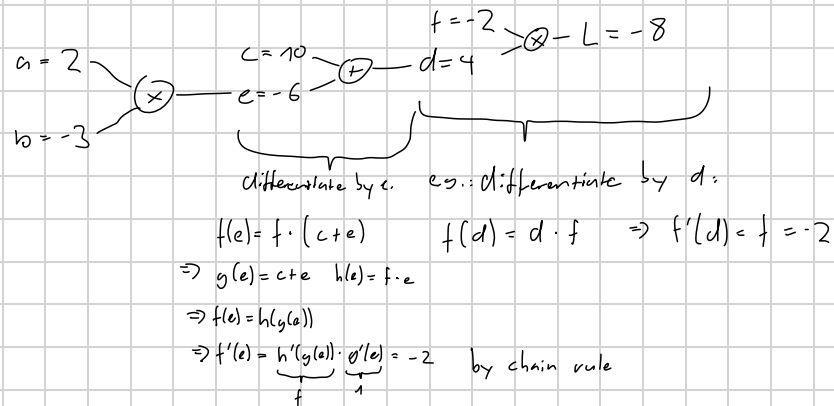 a = 2
b = -3
×
c = 10
e = -6
+
f = -2
d = 4
× L = -8
differentiate by e.
eg.: differentiate by d:
f(e) = f · (c+e)
f(d) = d · f ⇒ f'(d) = f = -2
⇒ g(e) = c+e h(e) = f · e
⇒ f(e) = h(g(e))
⇒ f'(e) = h'(g(e)) · g'(e) = -2 by chain rule
f 1